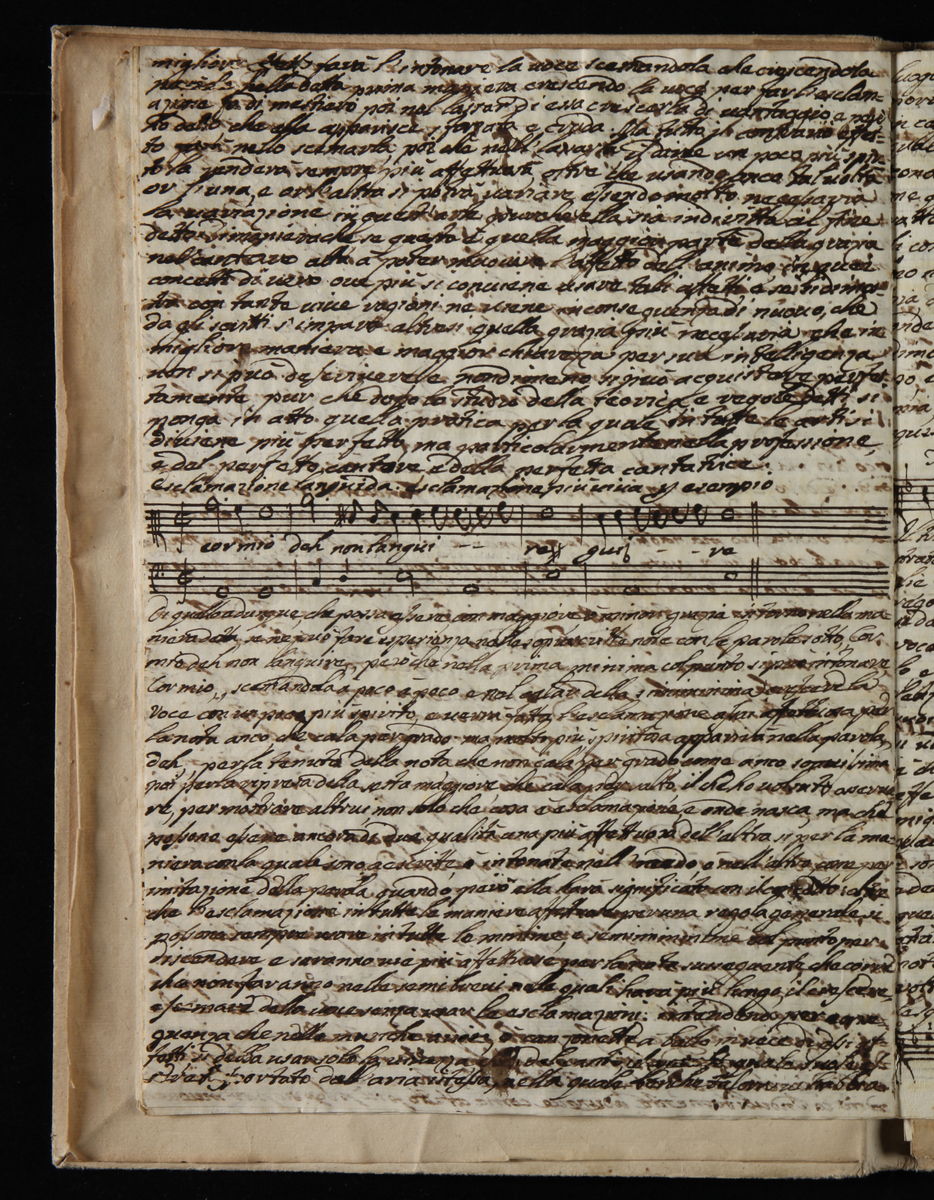 migliore effetto farà l'intonare la voce scemandola, che crescendola
però che nella detta prima maniera crescendo la voce per far l'esclam-
azione fa di mestiero poi nel lassar di essa crescerla di vantaggio, e però
ho detto che ella apparisce sforzata e cruda. Ma tutto il contrario effet-
to farà nello scemarla poi che nel lassarla il darle un poco più spiri-
to la renderà sempre più affettuosa oltre che usando ance tal volta
or l'una, e or l'altra si potrà variare essendo molto necessaria
la variazione in quest'arte pur che ella sia indiritta al fine
detto. di maniera che se questo è quella maggior parte della grazia
nel cantare atta a poter muovere l'affetto dell'animo in quei
concetti di vero ove più si conviene usare tali affetti e se si dimos-
tra con tante vive ragioni ne viene in conseguenza di nuovo, che
da gli scritti s'impara altresi quella grazia più necessaria che in
migliore maniera e maggior chiarezza per sua intelligenza
non si può descrivere e nondimeno si può acquistare perfet-
tamente pur che dopo lo studio della teorica, e regole dette si
ponga in atto quella pratica per la quale in tutte le arti si
diviene più perfetto, ma particolarmente nella professione,
e del perfetto cantore e della perfetta cantatrice.
esclamazione languida. esclamazione più viva p esempio
cor mio deh non langui - - re, gui - - re
Di quello adunque che possa essere con maggiore o minor grazia intorno nella ma-
niera detta, se ne può fare esperienza nelle soprascritte note con le parole sotto, Cor
mio deh non languire, però che nella prima minima col punto si può intonare
Cor mio, scemandola a poco a poco, e nel calar della semiminima crescere la
voce con un poco più spirito, e verrà fatta l'esclamazione assai affettuosa per
la nota anco che cala per grado ma molto più spiritosa apparirà nella parola
deh, per la tenuta della nota che non cala per grado come anco soavissima
poi per la ripresa della sesta maggiore che cala per salto, il che ho voluto osserva-
re, per mostrare altrui non solo che cosa è esclamazione, e onde nasca, ma che
possono essere ancora di due qualità una più affettuosa dell'altra si per la ma-
niera con la quale sono descritte o intonate nell'un modo o nell'altro come per
imitazione della parola quando però ella harà significato con il concetto oltre
che l'esclamazione in tutte le maniere affettuose per una regola generale si
possono sempre usare in tutte le minime, e semiminime col punto per
discendere e saranno vie più affettuose per la nota susseguente che corre
che non faranno nelle semibrevi nelle quali harà più luogo il crescere
e scemare della voce senza usar le esclamazioni: intendendo per conse-
guenza che nelle musiche ariose o canzonette a ballo in vece di essi af-
fetti si debba usar solo la vivezza del canto
portato dall'aria istessa, nella quale benche talora